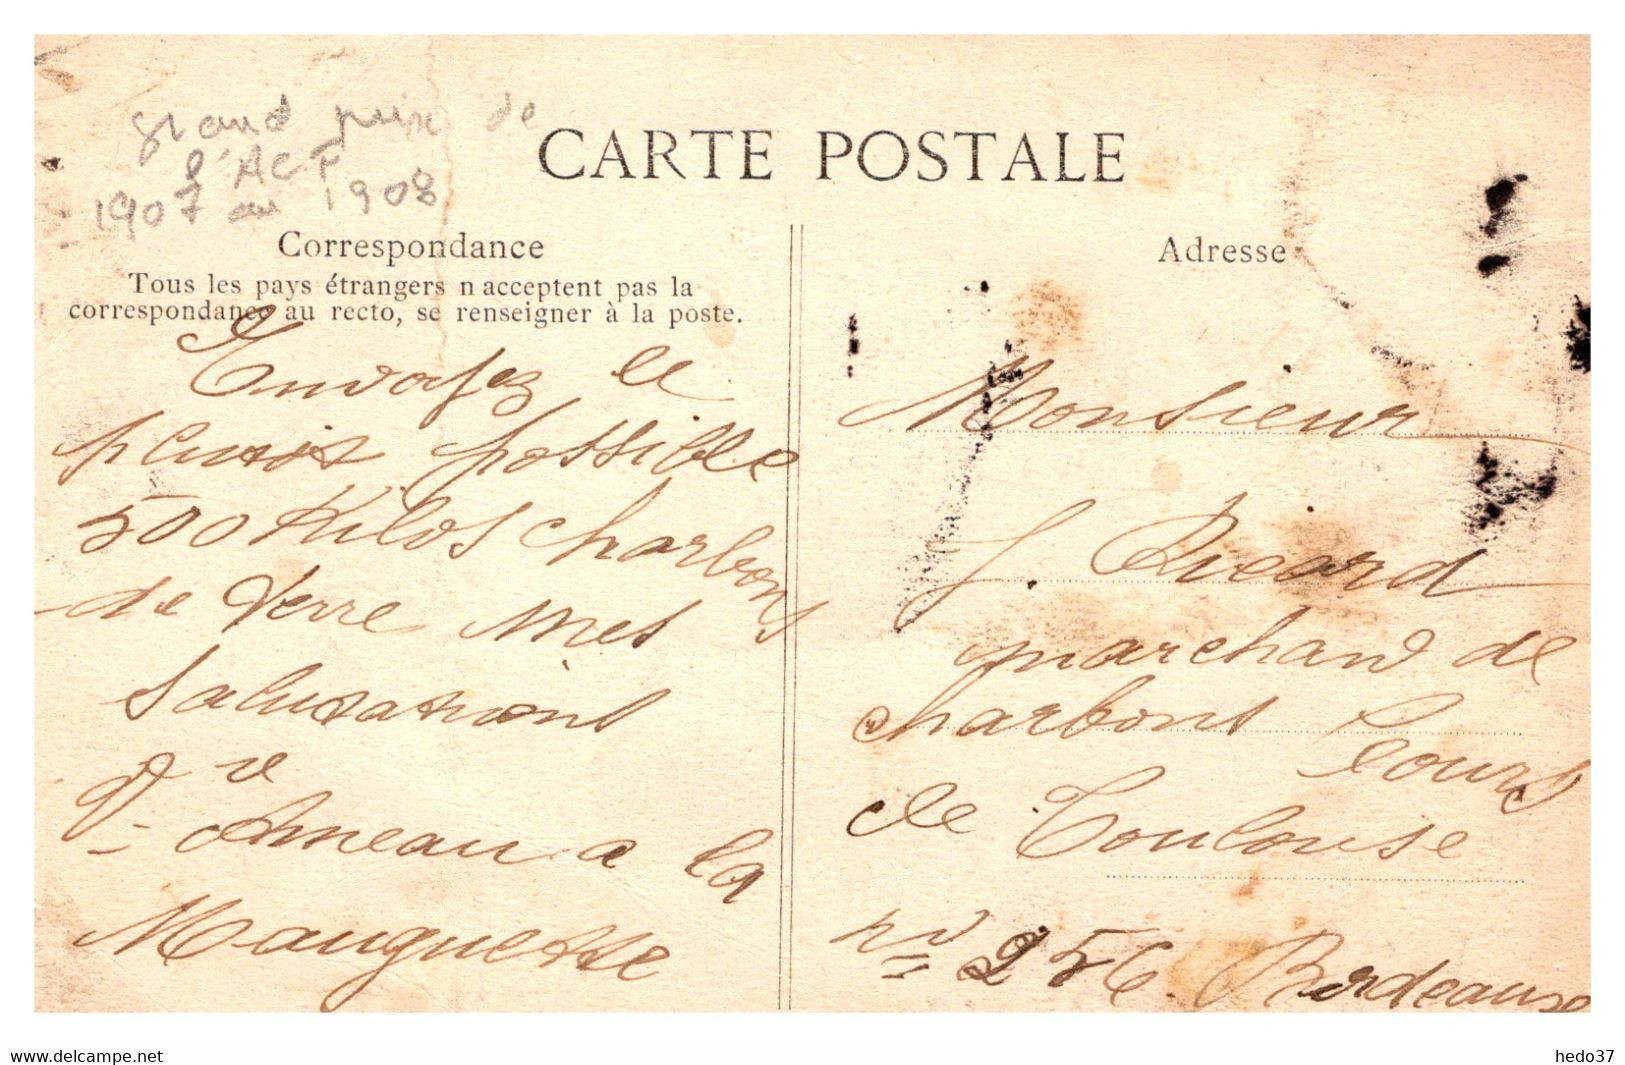 grand prix de
l'ACF
1907 ou 1908
CARTE POSTALE
Correspondance
Tous les pays étrangers n acceptent pas la
correspondance au recto, se renseigner à la poste.
Envoyez le
plutôt possible
500 Kilos charbons
de terre mes
salutations
Vve Anneau a la
Mauguette
Adresse
Monsieur
J. Ricard
marchand de
charbons Cours
de Toulouse
no 256 Bordeaux
www.delcampe.net
hedo37